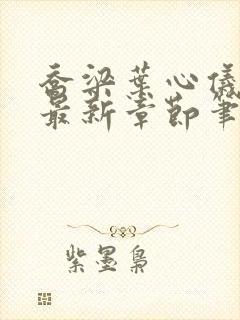 乔梁叶心仪
最新章节笔
紫墨枭